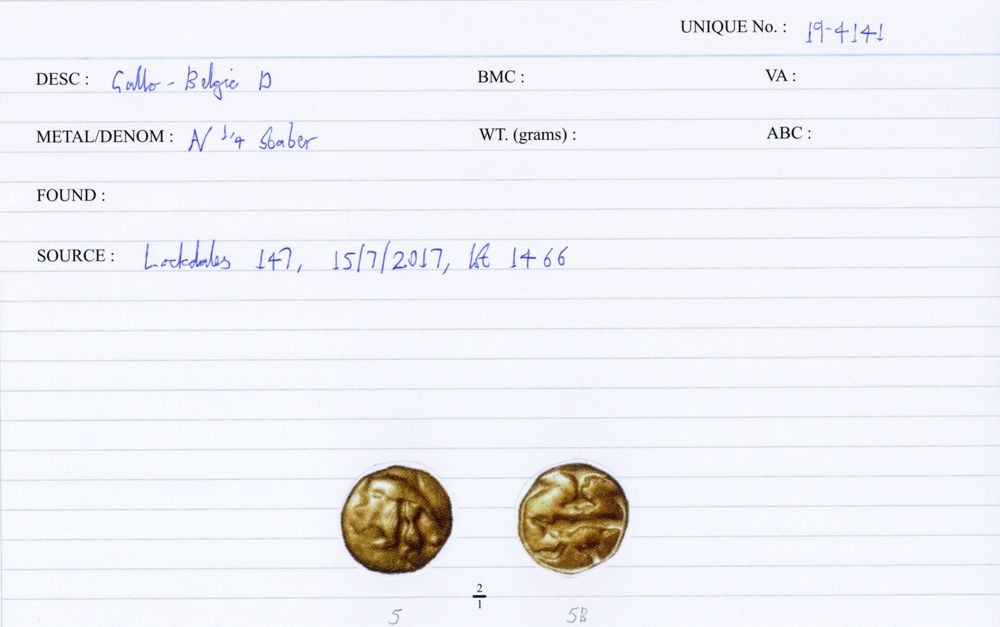 UNIQUE No. : 19-4141
DESC : Gallo-Belgic D BMC : VA :
METAL/DENOM : N 1/4 Stater WT. (grams) : ABC :
FOUND :
SOURCE : Lockdales 147, 15/7/2017, lot 1466
2/1
5 5B